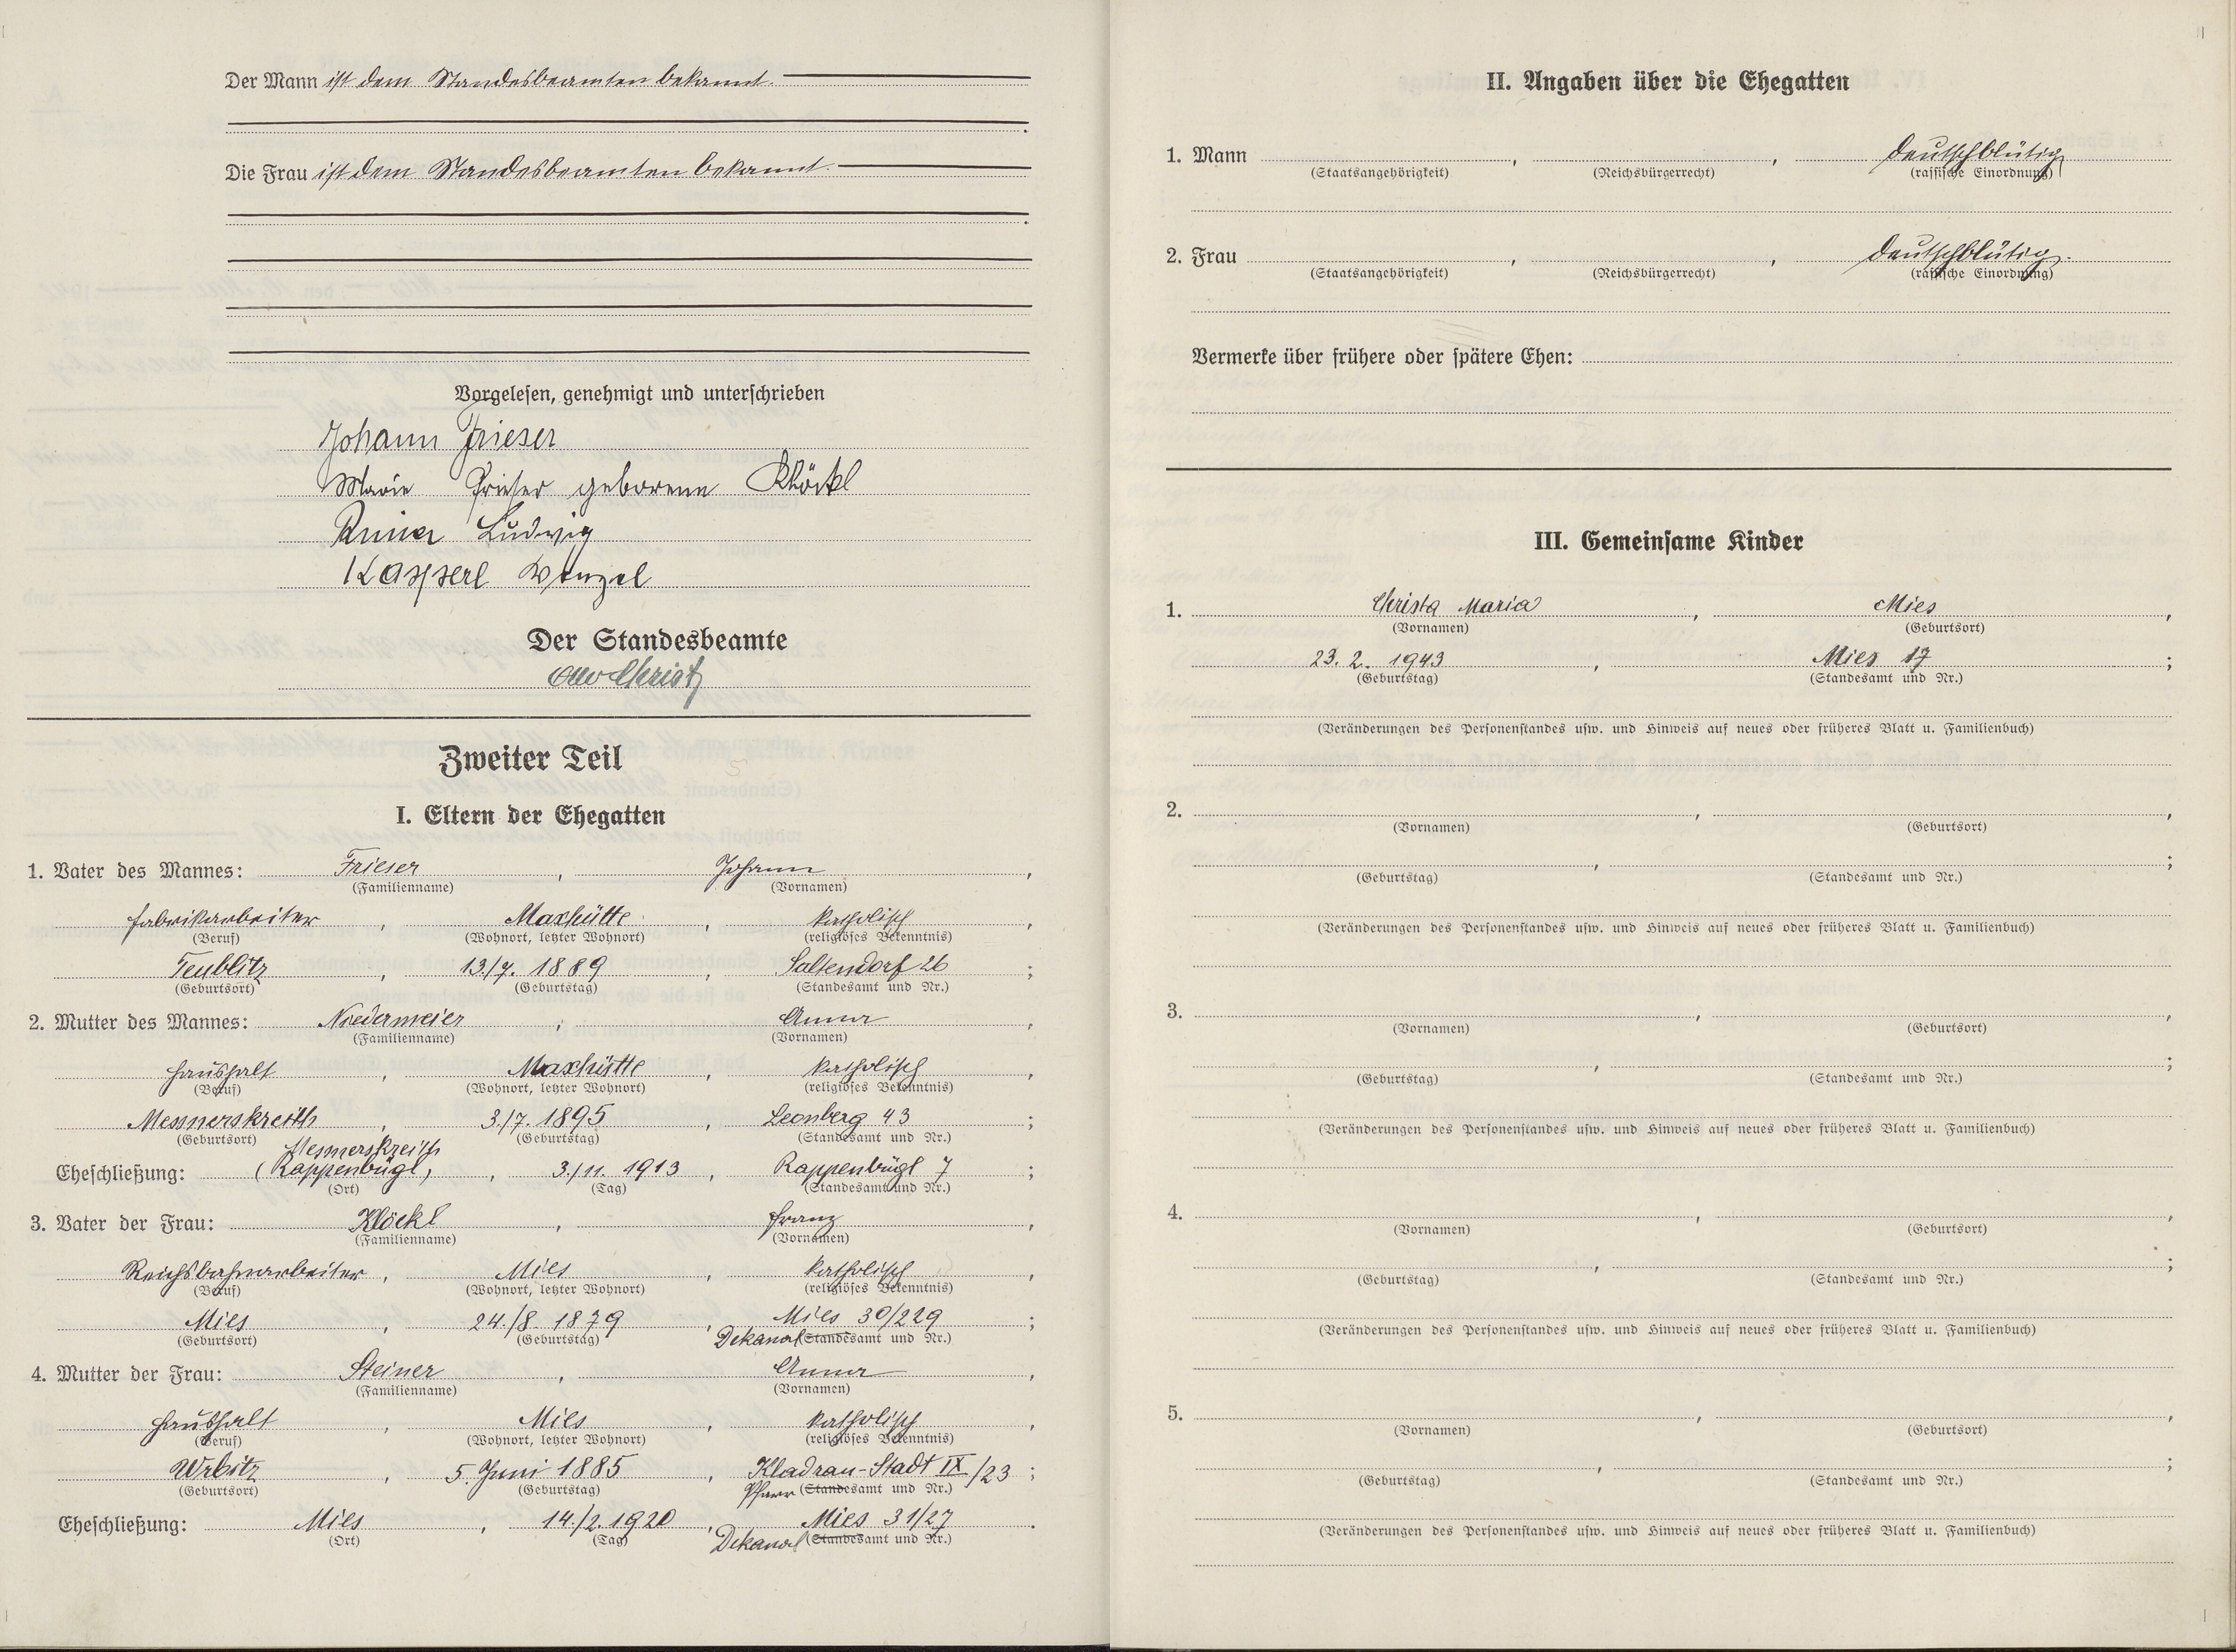 Der Mann ist dem Standesbeamten bekannt.
Die Frau ist dem Standesbeamten bekannt.
Vorgelesen, genehmigt und unterschrieben
Johann Frieser
Marie Frieser geborene Klöckl
Ludwig
Kasperl Wenzel
Der Standesbeamte
Christ
Zweiter Teil
I. Eltern der Ehegatten
1. Vater des Mannes: Frieser, Johann,
(Familienname) (Vornamen)
Fabrikarbeiter, Maxhütte, katholisch,
(Beruf) (Wohnort, letzter Wohnort) (religiöses Bekenntnis)
Teublitz, 13./7. 1889, Saltendorf 26;
(Geburtsort) (Geburtstag) (Standesamt und Nr.)
2. Mutter des Mannes: Niedermeier, Anna,
(Familienname) (Vornamen)
Haushalt, Maxhütte, katholisch,
(Beruf) (Wohnort, letzter Wohnort) (religiöses Bekenntnis)
Messnerskreith, 3./7. 1895, Leonberg 43;
(Geburtsort) (Geburtstag) (Standesamt und Nr.)
Messnerskreith
Eheschließung: (Rappenbügl, , 3./11. 1913, Rappenbügl 7;
(Ort) (Tag) (Standesamt und Nr.)
3. Vater der Frau: Klöckl, Franz,
(Familienname) (Vornamen)
Reichsbahnarbeiter, Mies, katholisch,
(Beruf) (Wohnort, letzter Wohnort) (religiöses Bekenntnis)
Mies, 24./8. 1879, Mies 30/229;
(Geburtsort) (Geburtstag) Dekanal (Standesamt und Nr.)
4. Mutter der Frau: Steiner, Anna,
(Familienname) (Vornamen)
Haushalt, Mies, katholisch,
(Beruf) (Wohnort, letzter Wohnort) (religiöses Bekenntnis)
Wrbitz, 5. Juni 1885, Kladrau-Stadt IX/23;
(Geburtsort) (Geburtstag) Pfarr (Standesamt und Nr.)
Eheschließung: Mies, 14./2. 1920, Mies 31/27.
(Ort) (Tag) Dekanal (Standesamt und Nr.)
II. Angaben über die Ehegatten
1. Mann , , deutschblütig
(Staatsangehörigkeit) (Reichsbürgerrecht) (rassische Einordnung)
2. Frau , , deutschblütig.
(Staatsangehörigkeit) (Reichsbürgerrecht) (rassische Einordnung)
Vermerke über frühere oder spätere Ehen:
III. Gemeinsame Kinder
1. Christa Maria, Mies,
(Vornamen) (Geburtsort)
23. 2. 1943, Mies 17;
(Geburtstag) (Standesamt und Nr.)
(Veränderungen des Personenstandes usw. und Hinweis auf neues oder früheres Blatt u. Familienbuch)
2. , ,
(Vornamen) (Geburtsort)
, ;
(Geburtstag) (Standesamt und Nr.)
(Veränderungen des Personenstandes usw. und Hinweis auf neues oder früheres Blatt u. Familienbuch)
3. , ,
(Vornamen) (Geburtsort)
, ;
(Geburtstag) (Standesamt und Nr.)
(Veränderungen des Personenstandes usw. und Hinweis auf neues oder früheres Blatt u. Familienbuch)
4. , ,
(Vornamen) (Geburtsort)
, ;
(Geburtstag) (Standesamt und Nr.)
(Veränderungen des Personenstandes usw. und Hinweis auf neues oder früheres Blatt u. Familienbuch)
5. , ,
(Vornamen) (Geburtsort)
, ;
(Geburtstag) (Standesamt und Nr.)
(Veränderungen des Personenstandes usw. und Hinweis auf neues oder früheres Blatt u. Familienbuch)